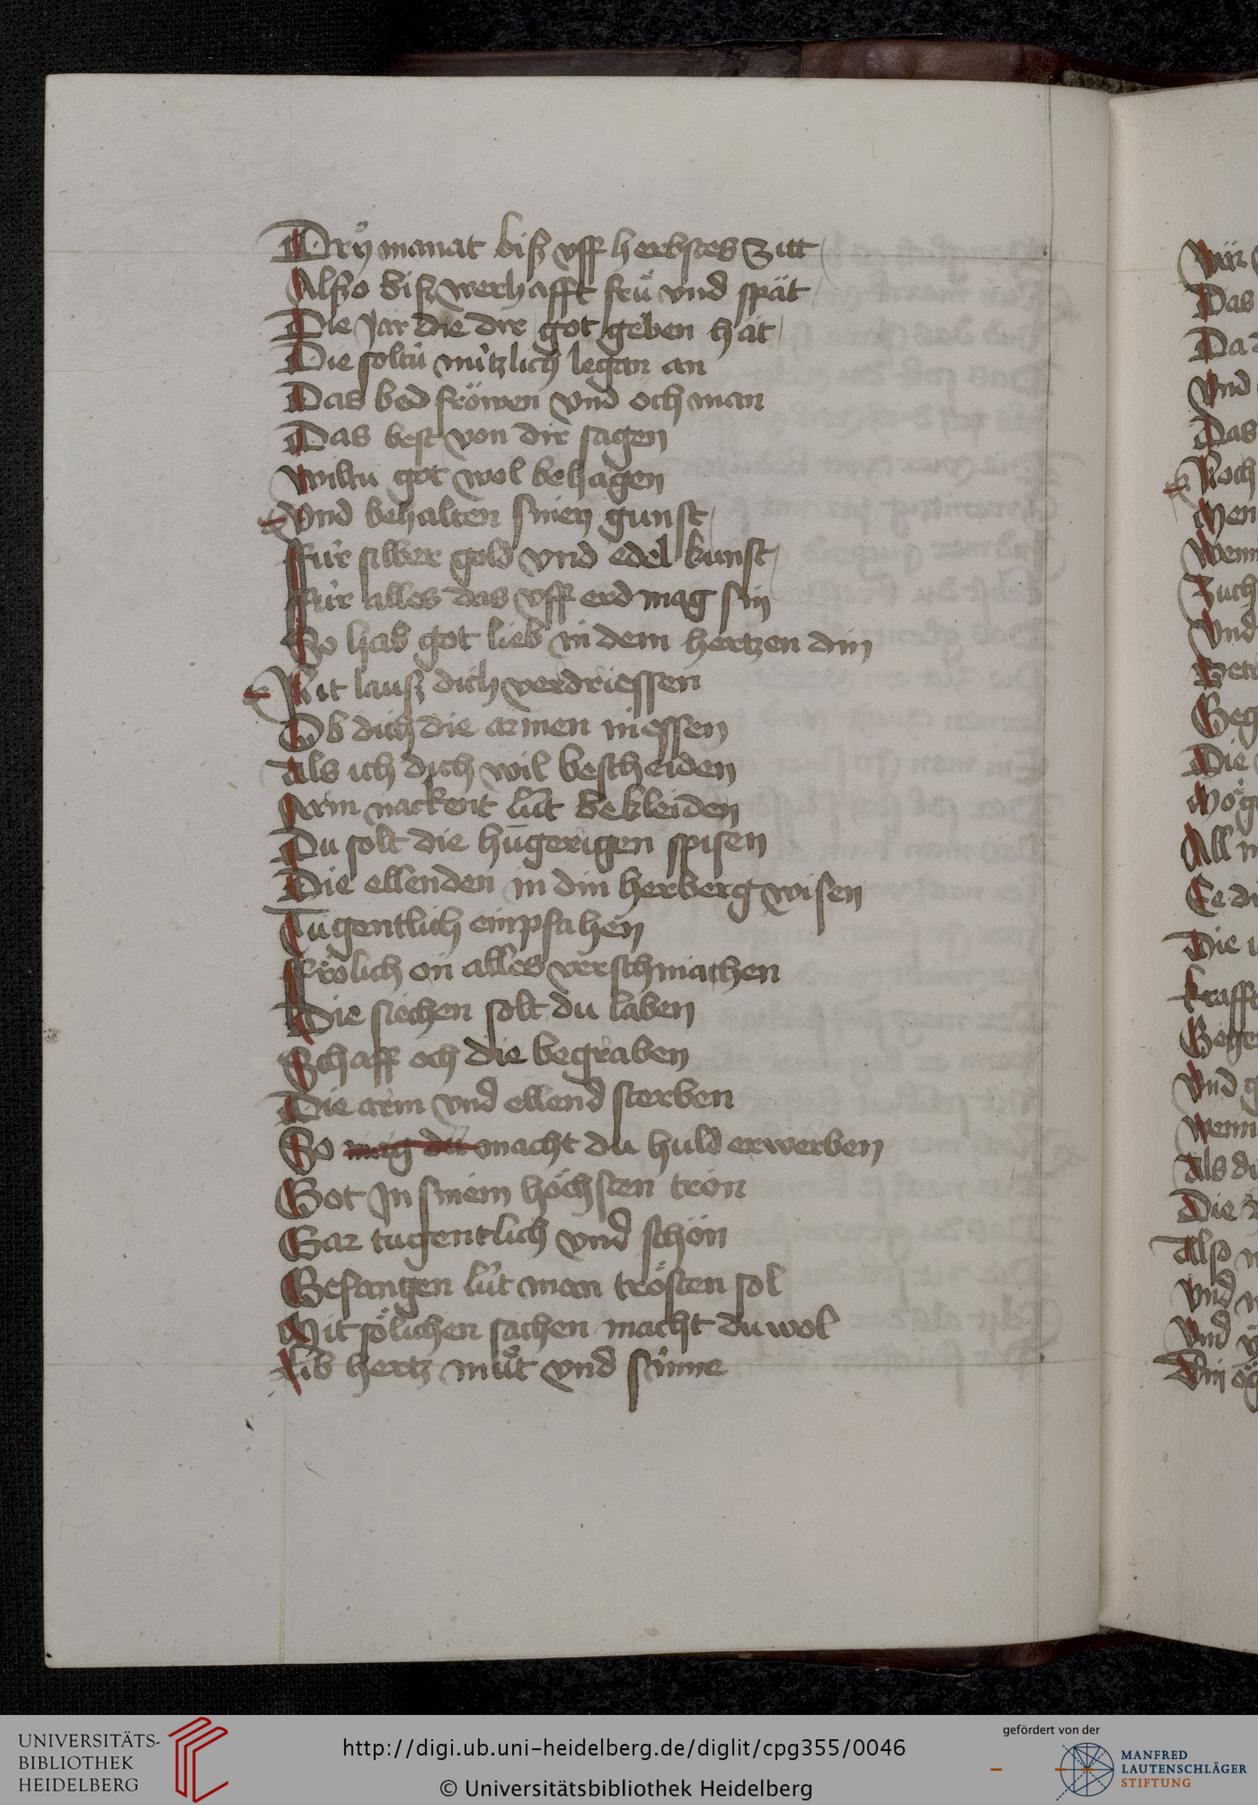 Dry manat biß vff herbstes Zitt
Alßo biß werhafft frü vnd spät
Die Jar die dir got geben hät
Die soltu nützlich legan an
Das bed fröwen vnd och man
Das best von dir sagen
Wiltu got wol behagen
Vnd behalten sinen gunst
Für silber gold vnd edel kunst
Für alles das vff erd mag sin
So hab got lieb in dem hertzen din
Nit lauß dich verdriessen
Ob dich die armen niessen
Als ich dich wil bescheiden
Arm nackent lüt bekleiden
Du solt die hūgerigen spisen
Die ellenden in din herberg wisen
Tugentlich empfahen
Frölich on alles verschmachen
Die siechen solt du laben
Schaff och die begraben
Die arm vnd ellend sterben
So mag du macht du huld erwerben
Got Jn sinem höchsten tron
Gar tugentlich vnd schön
Gefangen lüt man trösten sol
Mit sölichen sachen macht du wol
Lib hertz můt vnd sinne
Das
Vnd
Das
Noch
Vnd
Die
All
Die
Vnd
Die
Also
Vnd
Vnd
UNIVERSITÄTS-
BIBLIOTHEK
HEIDELBERG
http://digi.ub.uni-heidelberg.de/diglit/cpg355/0046
© Universitätsbibliothek Heidelberg
gefördert von der
MANFRED
LAUTENSCHLÄGER
STIFTUNG